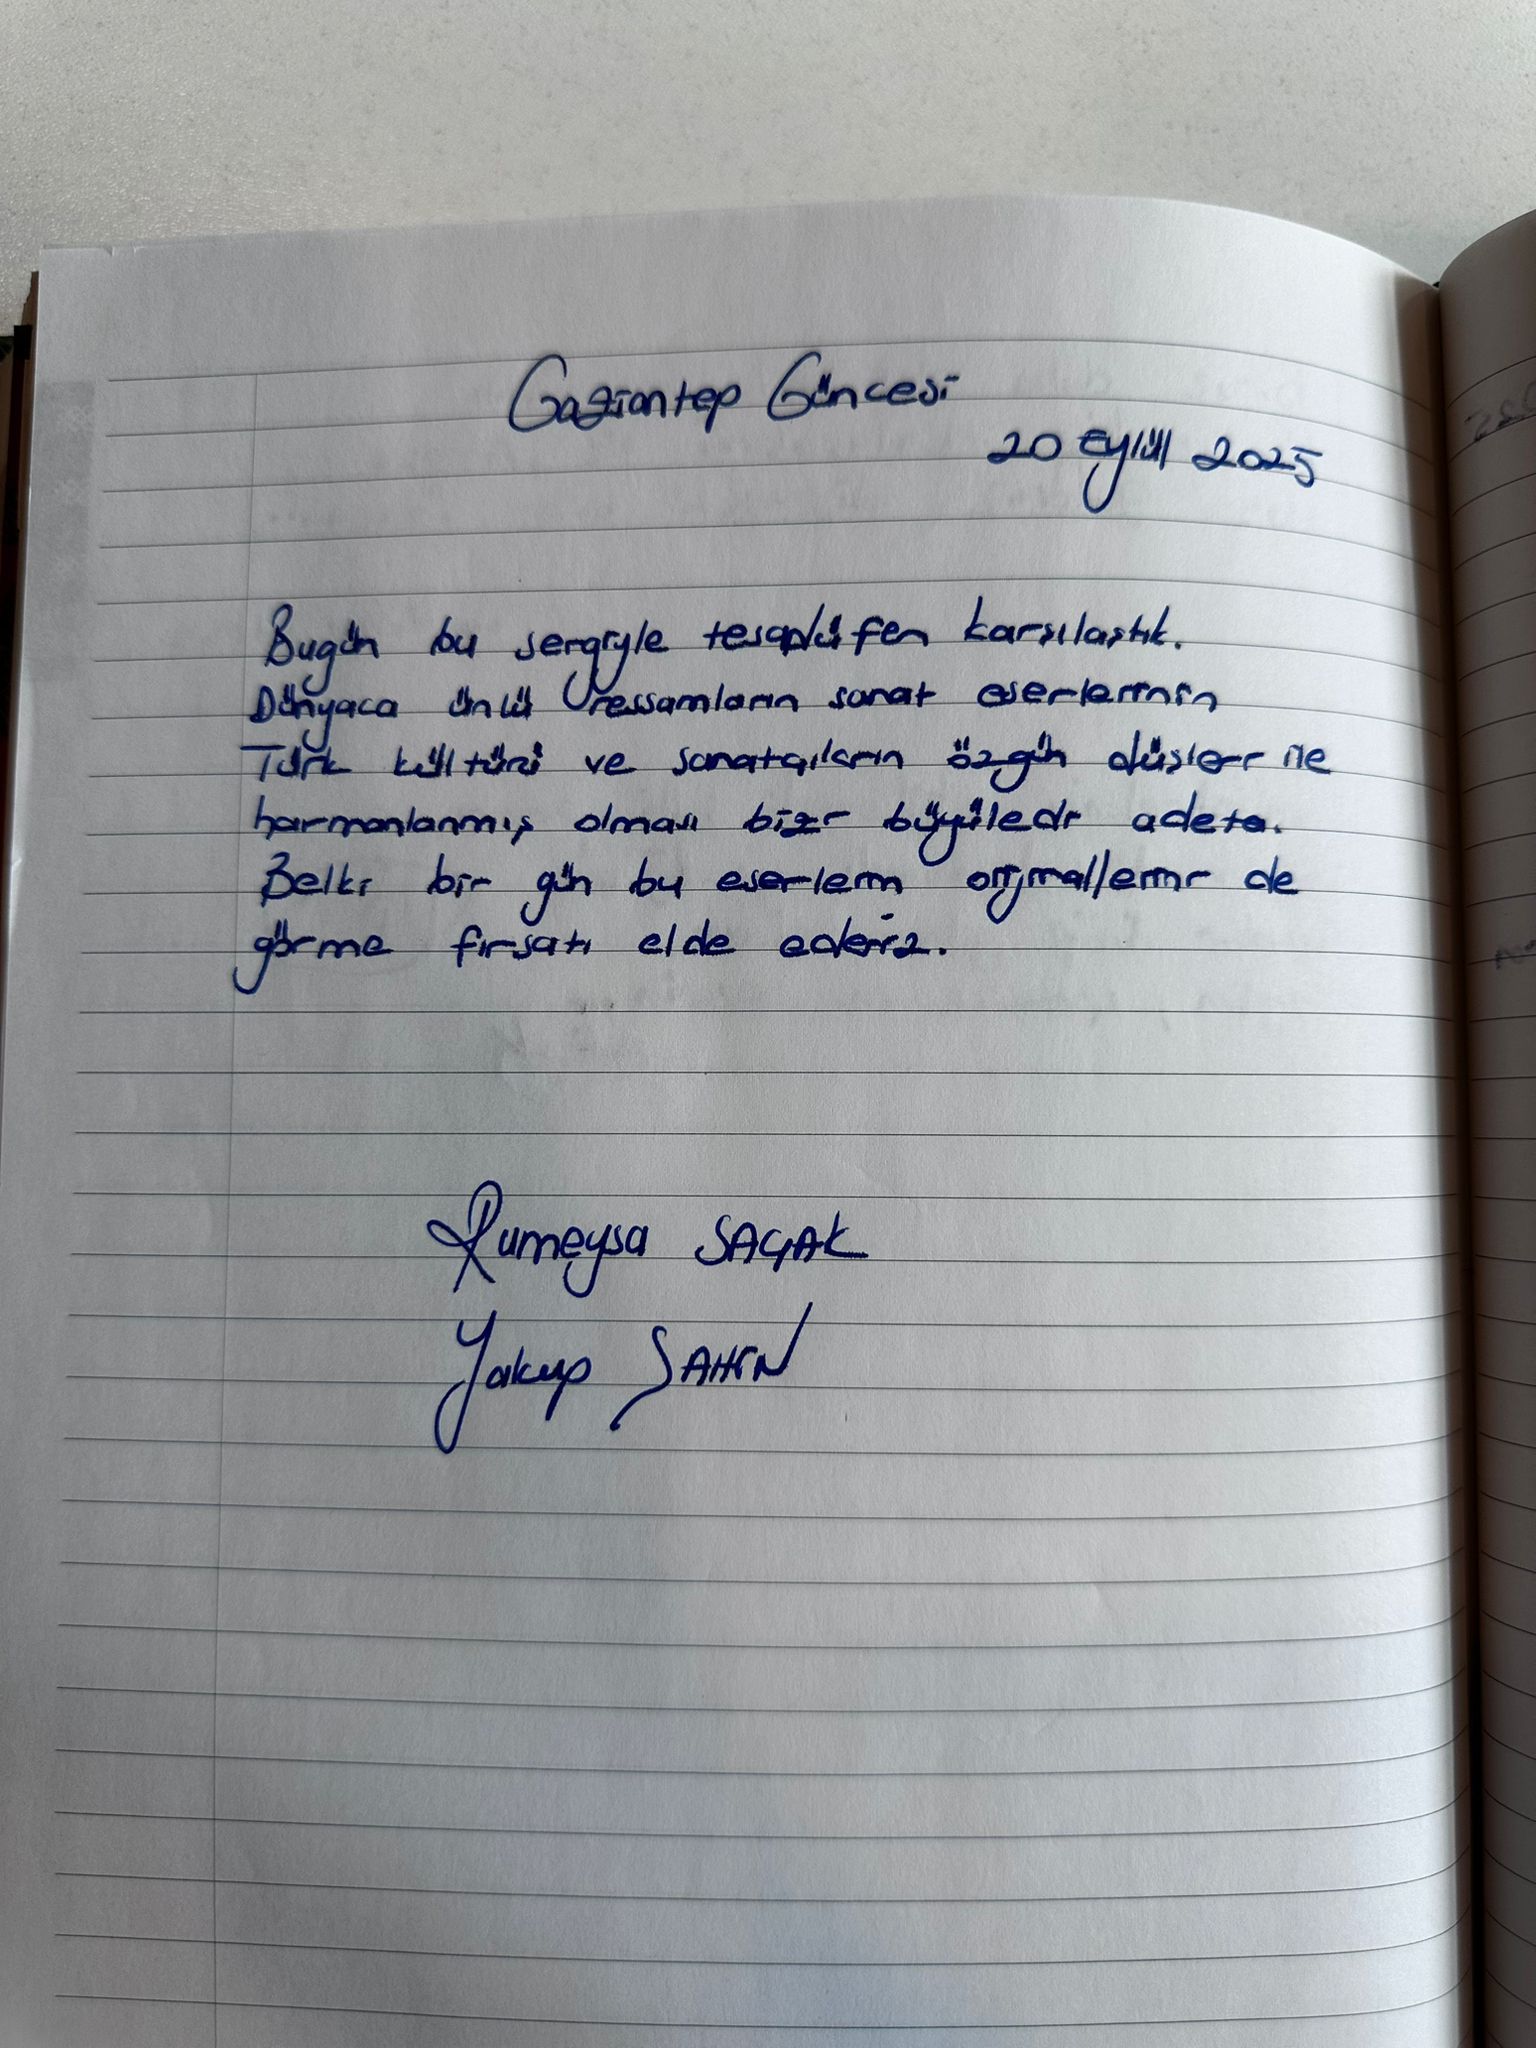 Gaziantep Güncesi
20 Eylül 2025
Bugün bu sergiyle tesadüfen karşılaştık.
Dünyaca ünlü ressamların sanat eserlerinin
Türk kültürü ve sanatçıların özgün düşler ile
harmanlanmış olması bizi büyüledi adeta.
Belki bir gün bu eserlerin orijinallerini de
görme fırsatı elde ederiz.
Rumeysa SAÇAK
Yakup ŞAHİN